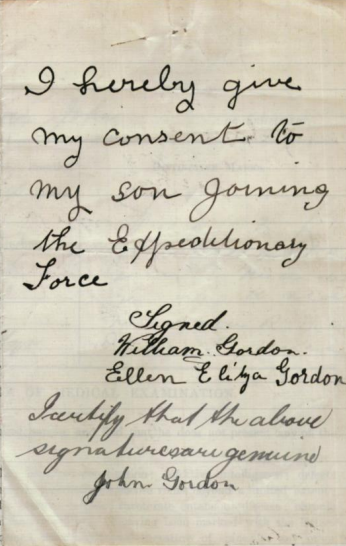 I hereby give
my consent to
my son joining
the Expeditionary
Force
Signed.
William. Gordon.
Ellen Eliza Gordon
I certify that the above
signatures are genuine
John Gordon